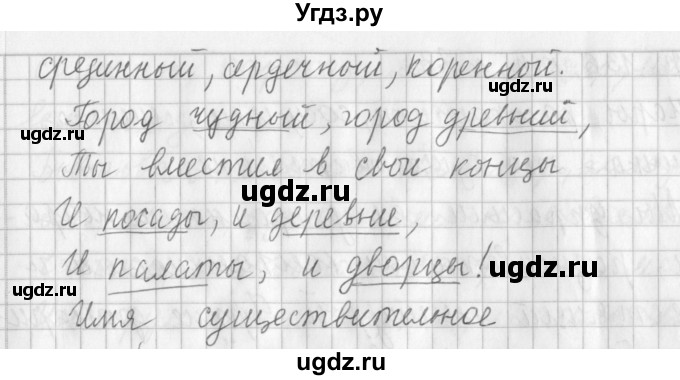 Угдз.ру
срединный, сердечный, коренной.
Город чудный, город древний,
ugdz.ru
ugdz.ru
Ты вместил в свои концы
ugdz.ru
И посады, и деревни,
И палаты, и дворцы!
ugdz.ru
ugdz.ru
Имя существительное
ugdz.ru